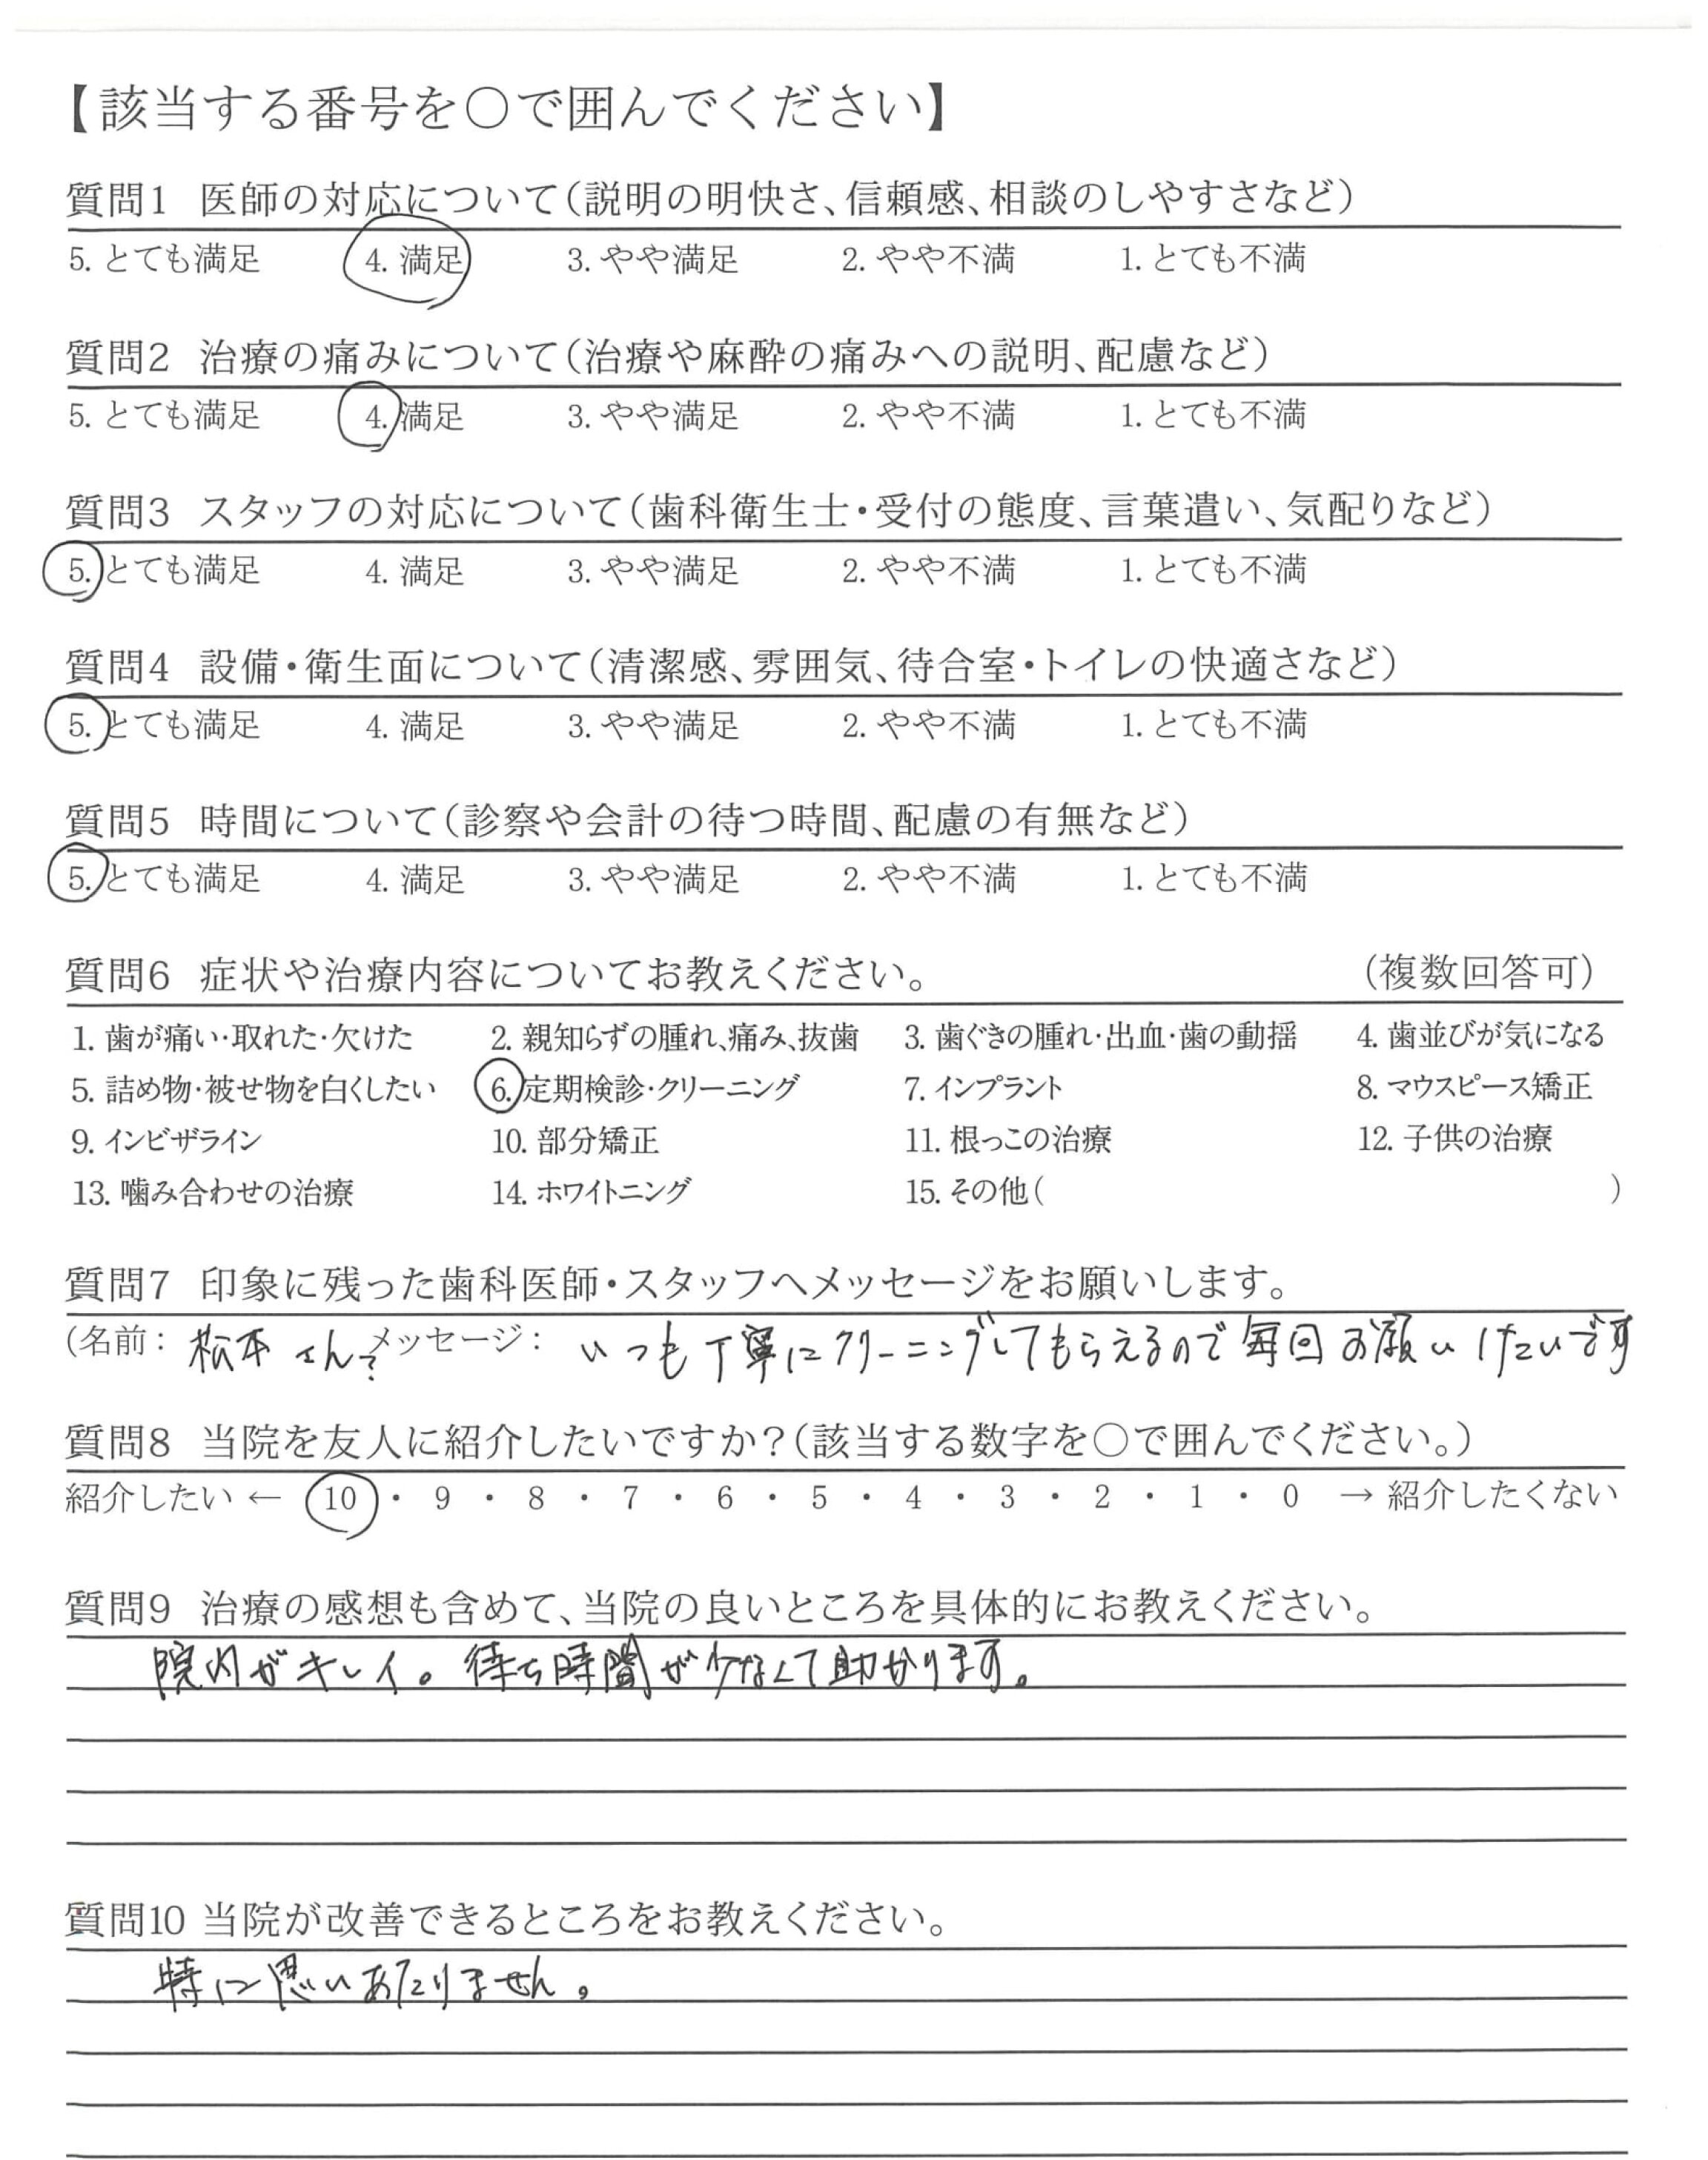 【該当する番号を○で囲んでください】
質問1 医師の対応について(説明の明快さ、信頼感、相談のしやすさなど)
5. とても満足 4. 満足 3. やや満足 2. やや不満 1. とても不満
質問2 治療の痛みについて(治療や麻酔の痛みへの説明、配慮など)
5. とても満足 4. 満足 3. やや満足 2. やや不満 1. とても不満
質問3 スタッフの対応について(歯科衛生士・受付の態度、言葉遣い、気配りなど)
5. とても満足 4. 満足 3. やや満足 2. やや不満 1. とても不満
質問4 設備・衛生面について(清潔感、雰囲気、待合室・トイレの快適さなど)
5. とても満足 4. 満足 3. やや満足 2. やや不満 1. とても不満
質問5 時間について(診察や会計の待つ時間、配慮の有無など)
5. とても満足 4. 満足 3. やや満足 2. やや不満 1. とても不満
質問6 症状や治療内容についてお教えください。 (複数回答可)
1. 歯が痛い・取れた・欠けた 2. 親知らずの腫れ、痛み、抜歯 3. 歯ぐきの腫れ・出血・歯の動揺 4. 歯並びが気になる
5. 詰め物・被せ物を白くしたい 6. 定期検診・クリーニング 7. インプラント 8. マウスピース矯正
9. インビザライン 10. 部分矯正 11. 根っこの治療 12. 子供の治療
13. 噛み合わせの治療 14. ホワイトニング 15. その他( )
質問7 印象に残った歯科医師・スタッフへメッセージをお願いします。
(名前: 松本さん? メッセージ: いつも丁寧にクリーニングしてもらえるので毎回お願いしたいです
質問8 当院を友人に紹介したいですか?(該当する数字を○で囲んでください。)
紹介したい ← 10 ・ 9 ・ 8 ・ 7 ・ 6 ・ 5 ・ 4 ・ 3 ・ 2 ・ 1 ・ 0 → 紹介したくない
質問9 治療の感想も含めて、当院の良いところを具体的にお教えください。
院内がキレイ。待ち時間が少なくて助かります。
質問10 当院が改善できるところをお教えください。
特に思いあたりません。